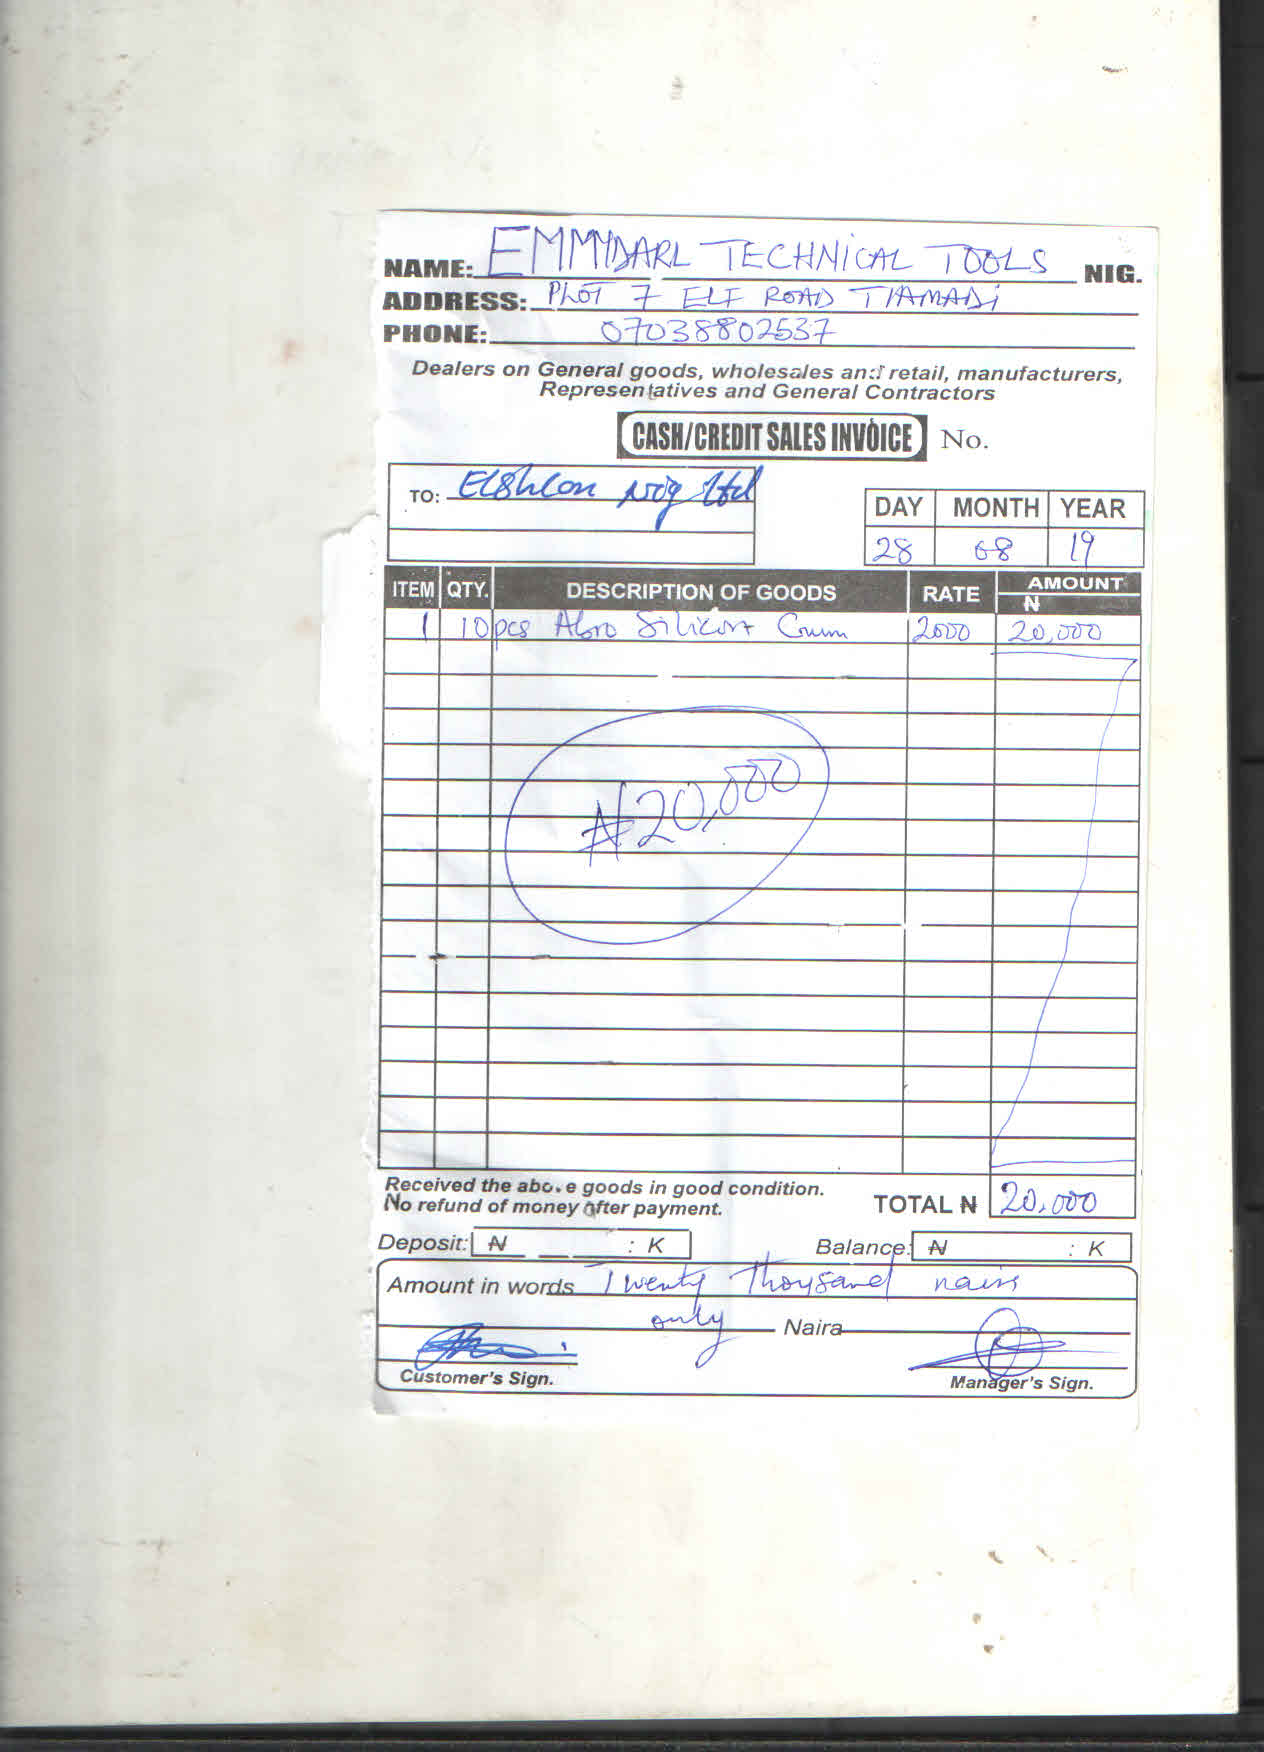 NAME: EMMYDARL TECHNICAL TOOLS NIG.
ADDRESS: PLOT 7 ELF ROAD
PHONE: 07038802537
Dealers on General goods, wholesales and retail, manufacturers,
Representatives and General Contractors
CASH/CREDIT SALES INVOICE No.
TO: Nig Ltd
DAY MONTH YEAR
28 08 19
ITEM QTY. DESCRIPTION OF GOODS RATE AMOUNT
₦
1 10 pcs Abro Silicon 2000 20,000
₦20,000
Received the above goods in good condition.
No refund of money after payment.
TOTAL ₦ 20,000
Deposit: ₦ : K Balance: ₦ : K
Amount in words Twenty Thousand naira
only Naira
Customer's Sign. Manager's Sign.